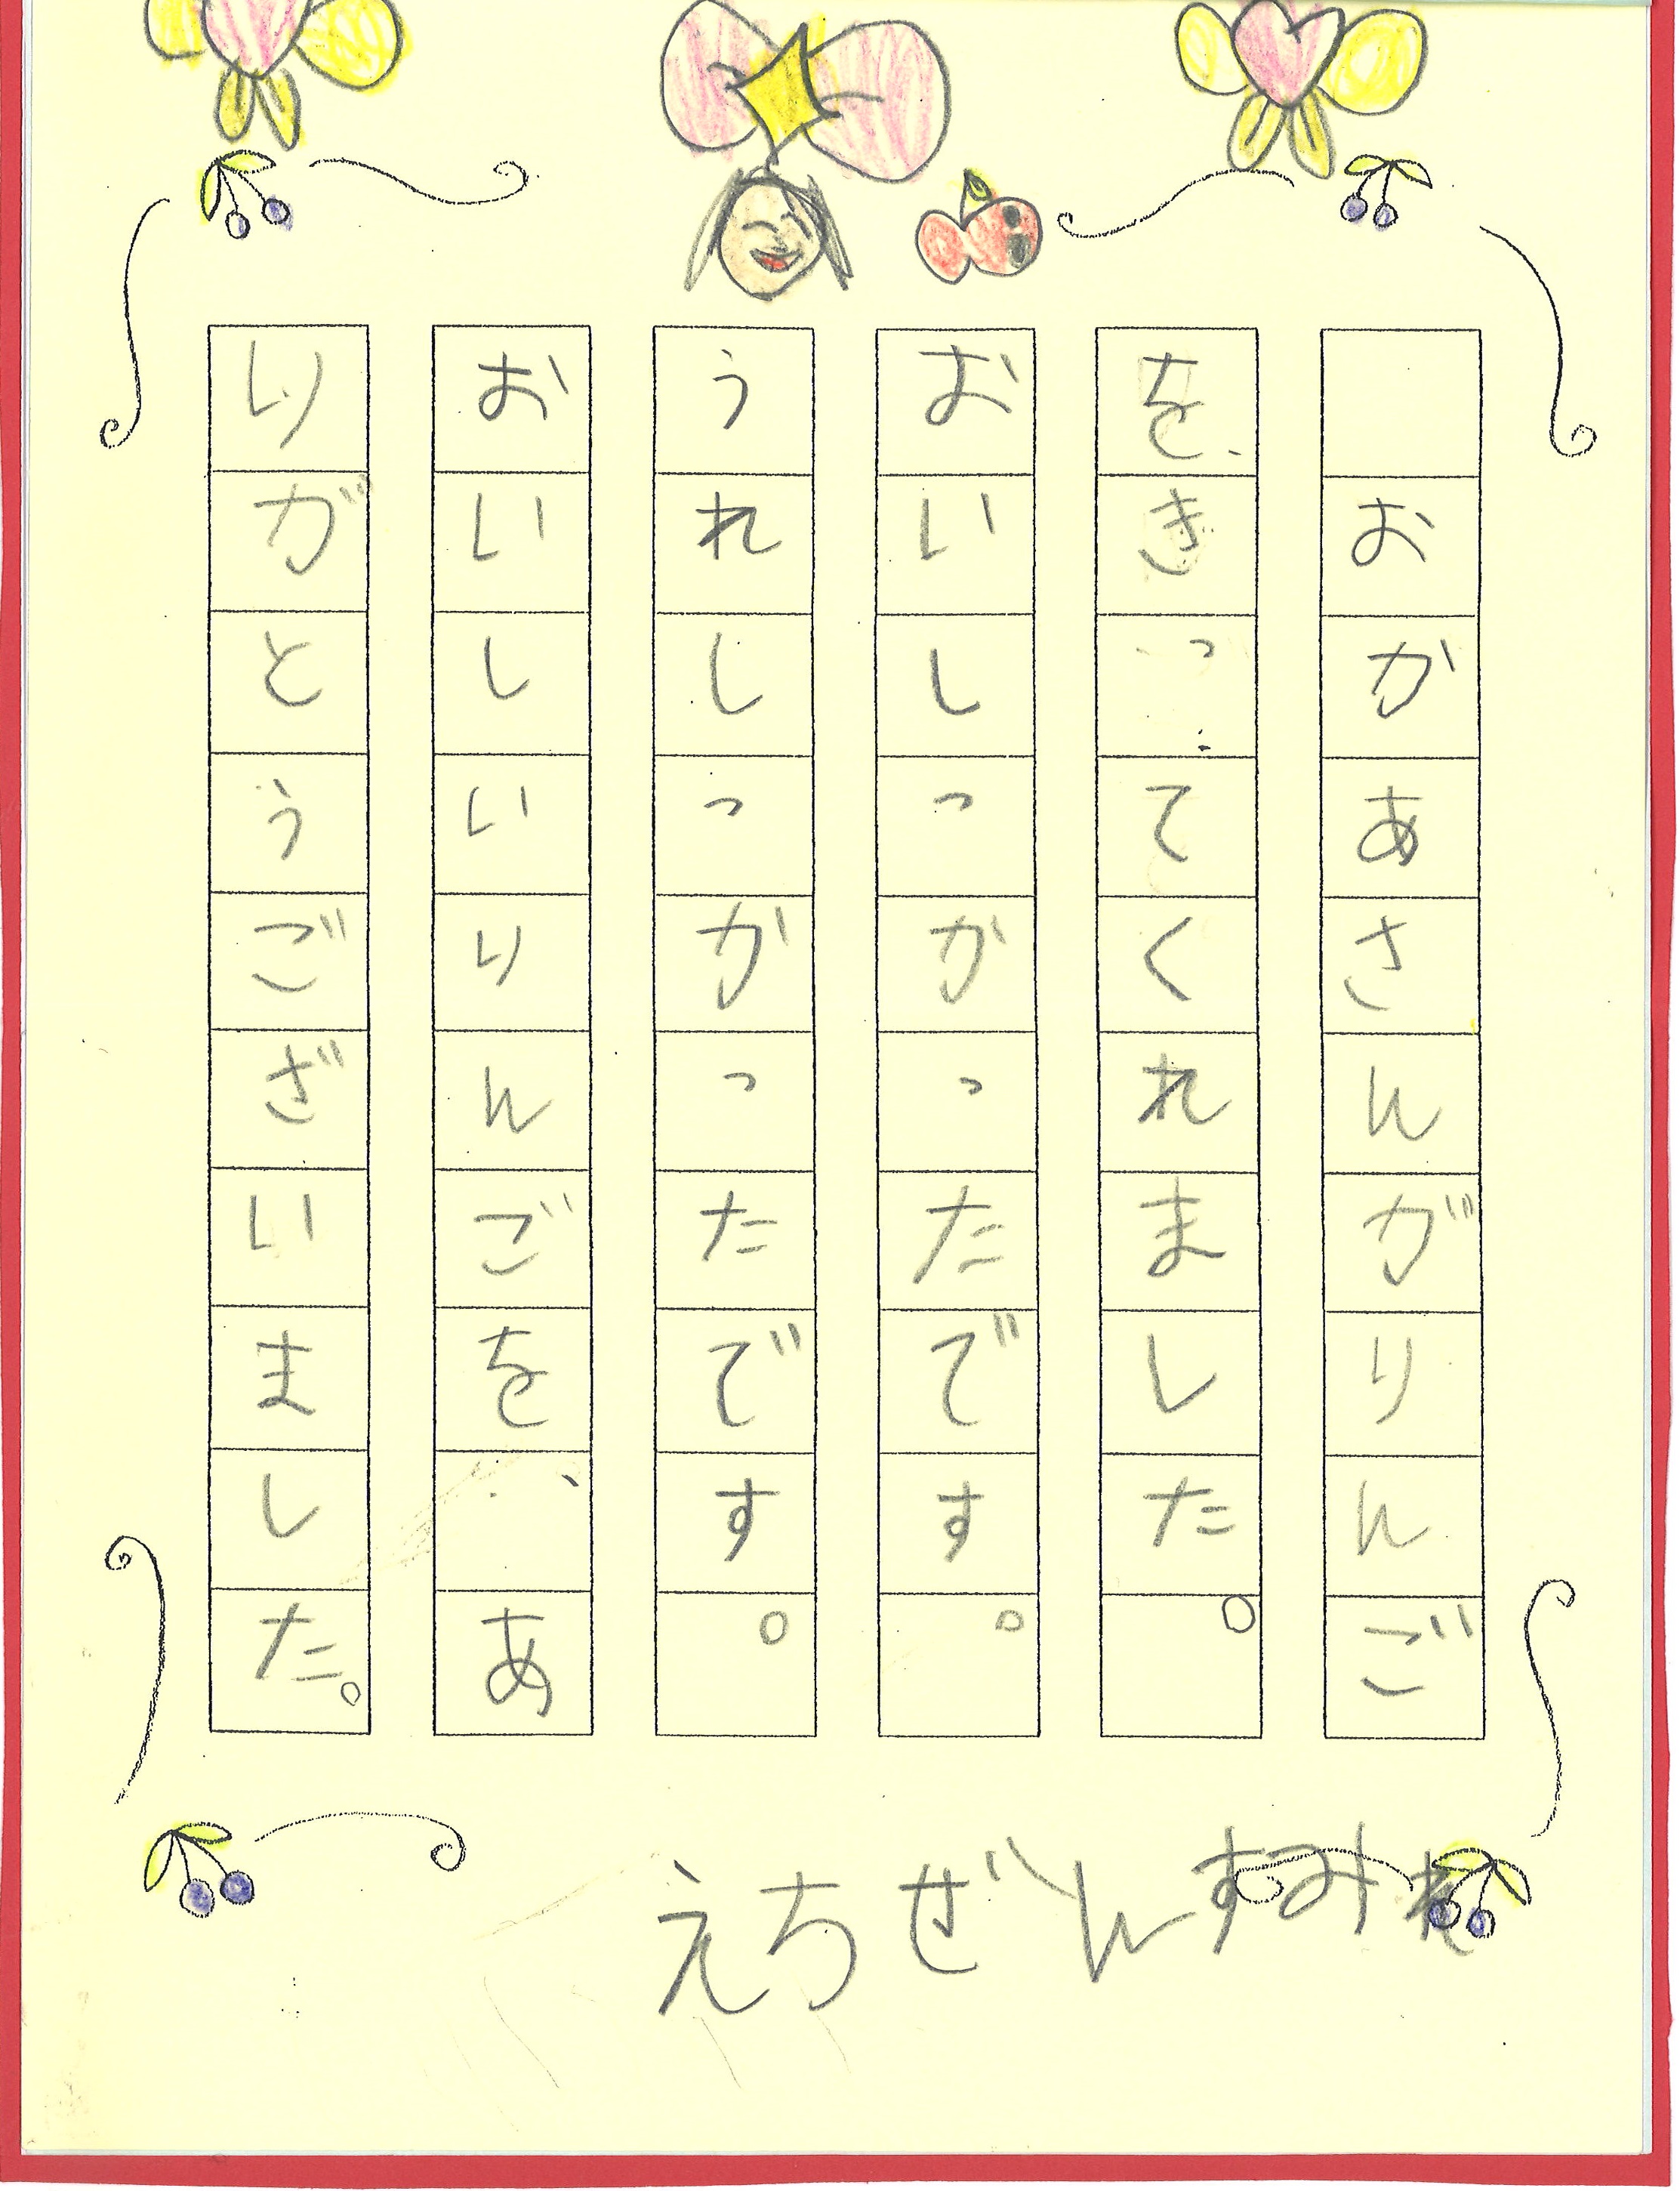 おかあさんがりんご
をきってくれました。
おいしっかったです。
うれしっかったです。
おいしいりんごを、あ
りがとうございました。
えちぜんすみれ